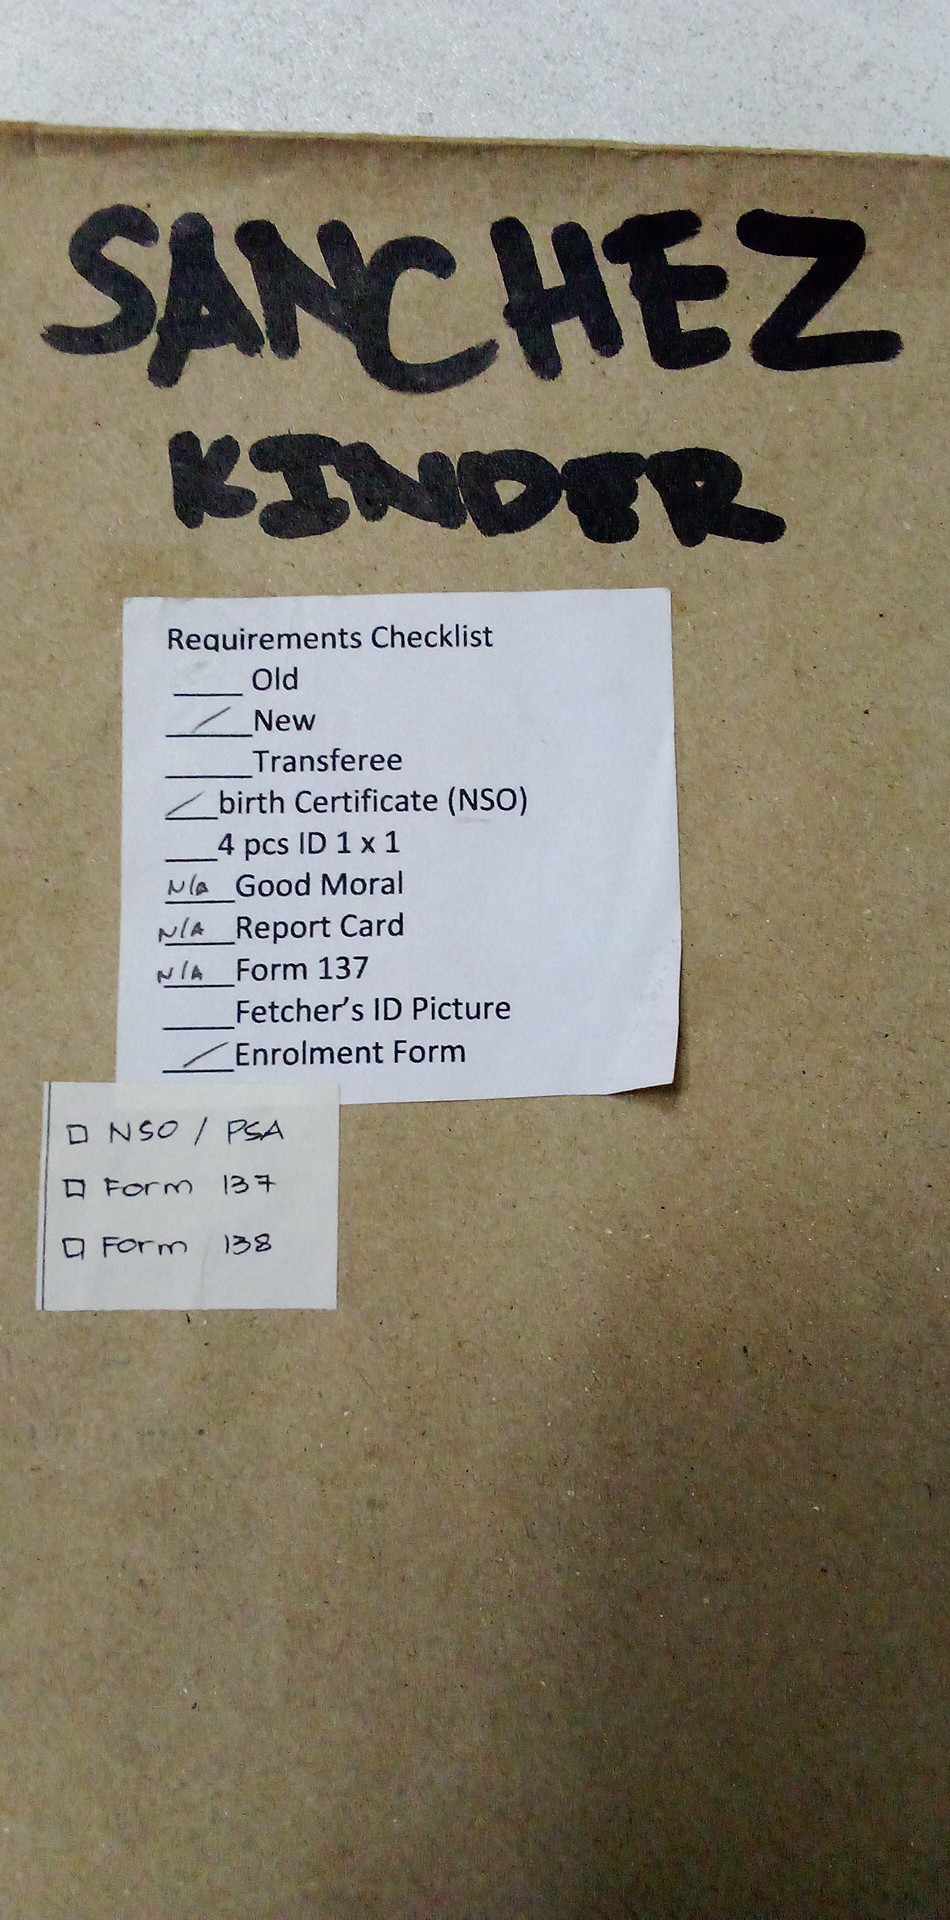 SANCHEZ
KINDER
Requirements Checklist
____ Old
__/__New
_____Transferee
_/_birth Certificate (NSO)
___4 pcs ID 1 x 1
N/A Good Moral
N/A Report Card
N/A Form 137
____Fetcher's ID Picture
_/_Enrolment Form
□ NSO / PSA
□ Form 137
□ Form 138